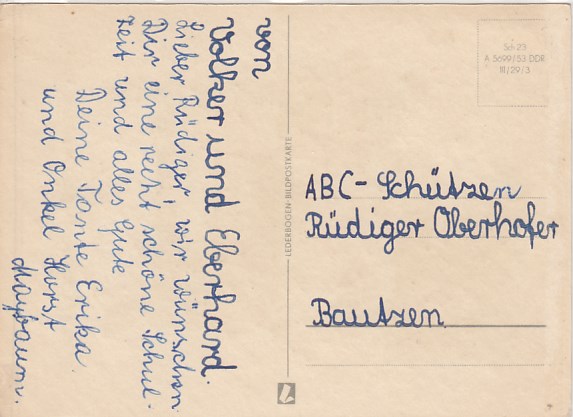 von
Volker und Eberhard.
Lieber Rüdiger, wir wünschen
Dir eine recht schöne Schul-
zeit und alles Gute
Deine Tante Erika
und Onkel Horst
Maybaum.
LEDERBOGEN-BILDPOSTKARTE
Sch 23
A 5699/53 DDR
III/29/3
ABC-Schützen
Rüdiger Oberhofer
Bautzen